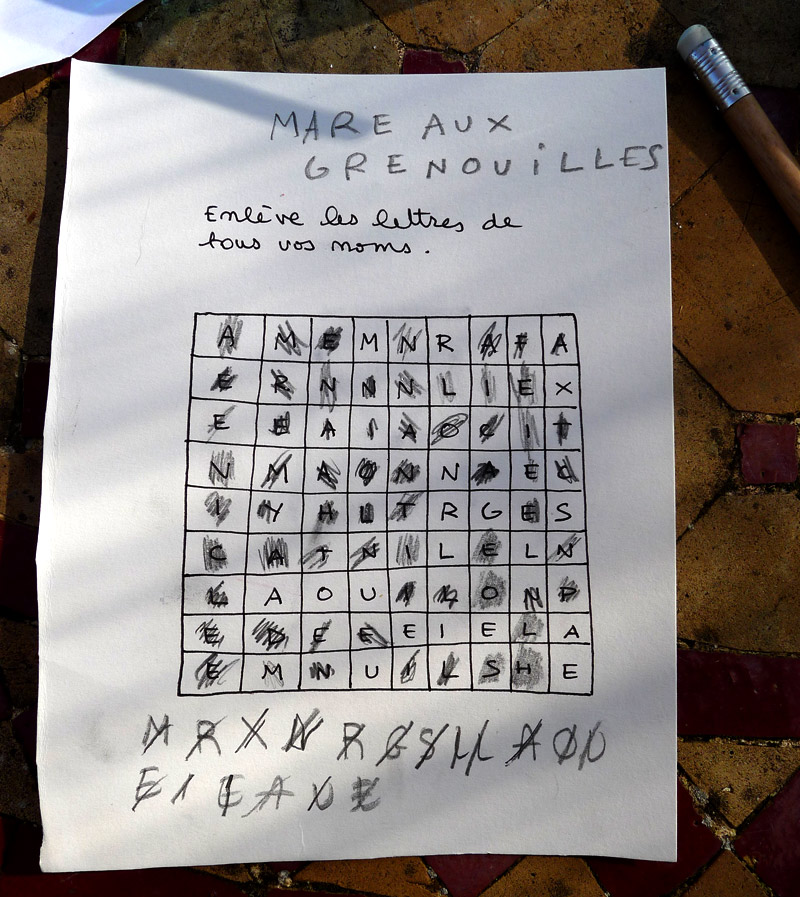 MARE AUX
GRENOUiLLES
Enlève les lettres de
tous vos noms.
A M E M N R A F A
E R N N N L I E X
E E A I A O C I T
N M A O N N A E C
I Y H U T R G E S
C A T N I L E L N
L A O U I L O N P
E D E E E I E L A
E M N U I L S H E
M R X N R G S L L A O U
E I E A U E